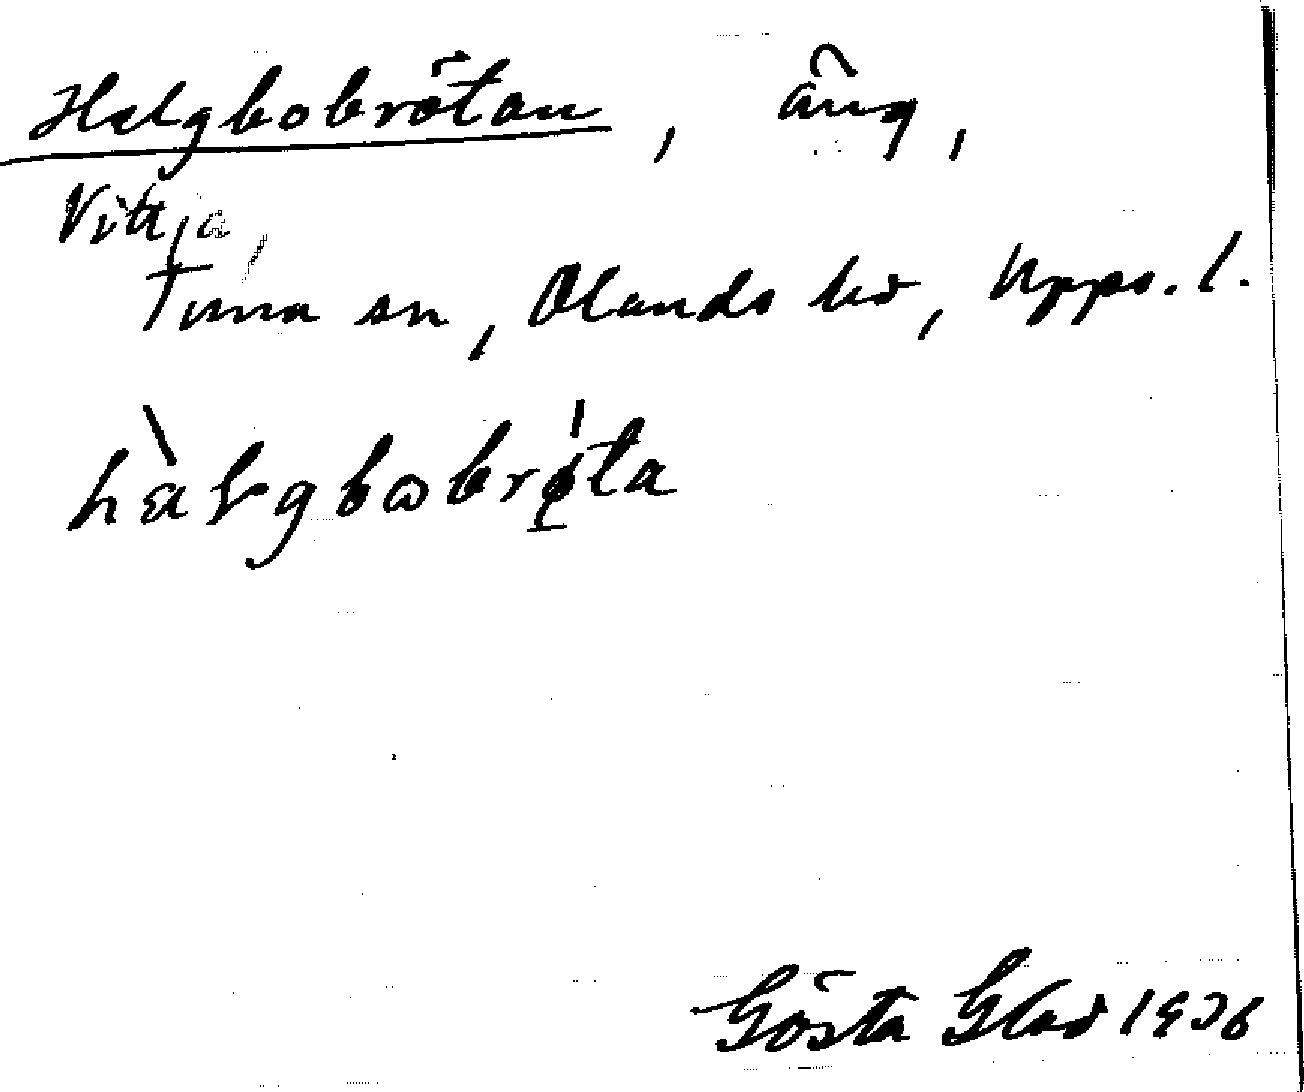 Helgbobrötan, äng,
Vittja,
Tuna sn, Olands hd, Upps. l.
Gösta Glad 1936